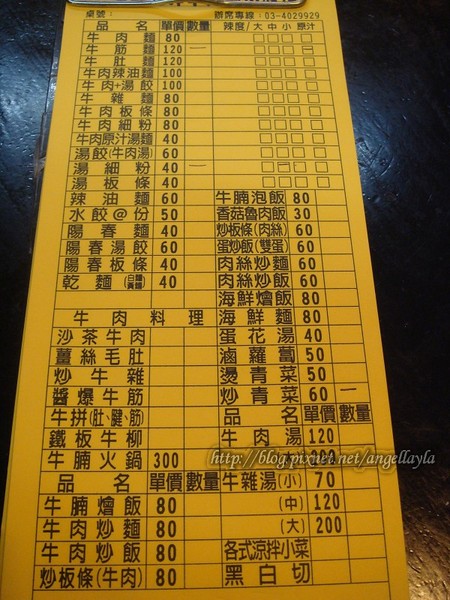 桌號： 辦席專線：03-4029929
品名 單價 數量 辣度/大 中 小 原汁
牛肉麵 80 □□□□
牛筋麵 120 一 □□□□
牛肚麵 120 □□□□
牛肉辣油麵 100 □□□□
牛肉+湯餃 100 □□□□
牛雜麵 80 □□□□
牛肉板條 80 □□□□
牛肉細粉 80 □□□□
牛肉原汁湯麵 40 □□□□
湯餃(牛肉湯) 60 □□□□
湯細粉 40 一 □□□□
湯板條 40 □□□□
辣油麵 60
水餃@份 50
陽春麵 40
陽春湯餃 60
陽春板條 40
乾麵(白麵 黃麵) 40
牛肉料理
沙茶牛肉
薑絲毛肚
炒牛雜
醬爆牛筋
牛拼(肚、腱、筋)
鐵板牛柳
牛腩火鍋 300
品名 單價 數量
牛腩燴飯 80
牛肉炒麵 80
牛肉炒飯 80
炒板條(牛肉) 80
牛腩泡飯 80
香菇魯肉飯 30
炒板條(肉絲) 60
蛋炒飯(雙蛋) 60
肉絲炒麵 60
肉絲炒飯 60
海鮮燴飯 80
海鮮麵 80
蛋花湯 40
滷蘿蔔 50
燙青菜 50
炒青菜 60 一
品名 單價 數量
牛肉湯 120
http://blog.pixnet.net/angellayla
牛雜湯(小) 70
(中) 120
(大) 200
各式涼拌小菜
黑白切